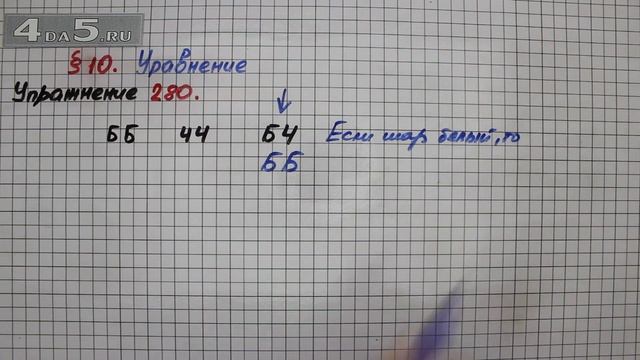 4DA5.RU
§ 10. Уравнение
Упражнение 280.
ББ ЧЧ БЧ Если шар белый, то
ББ